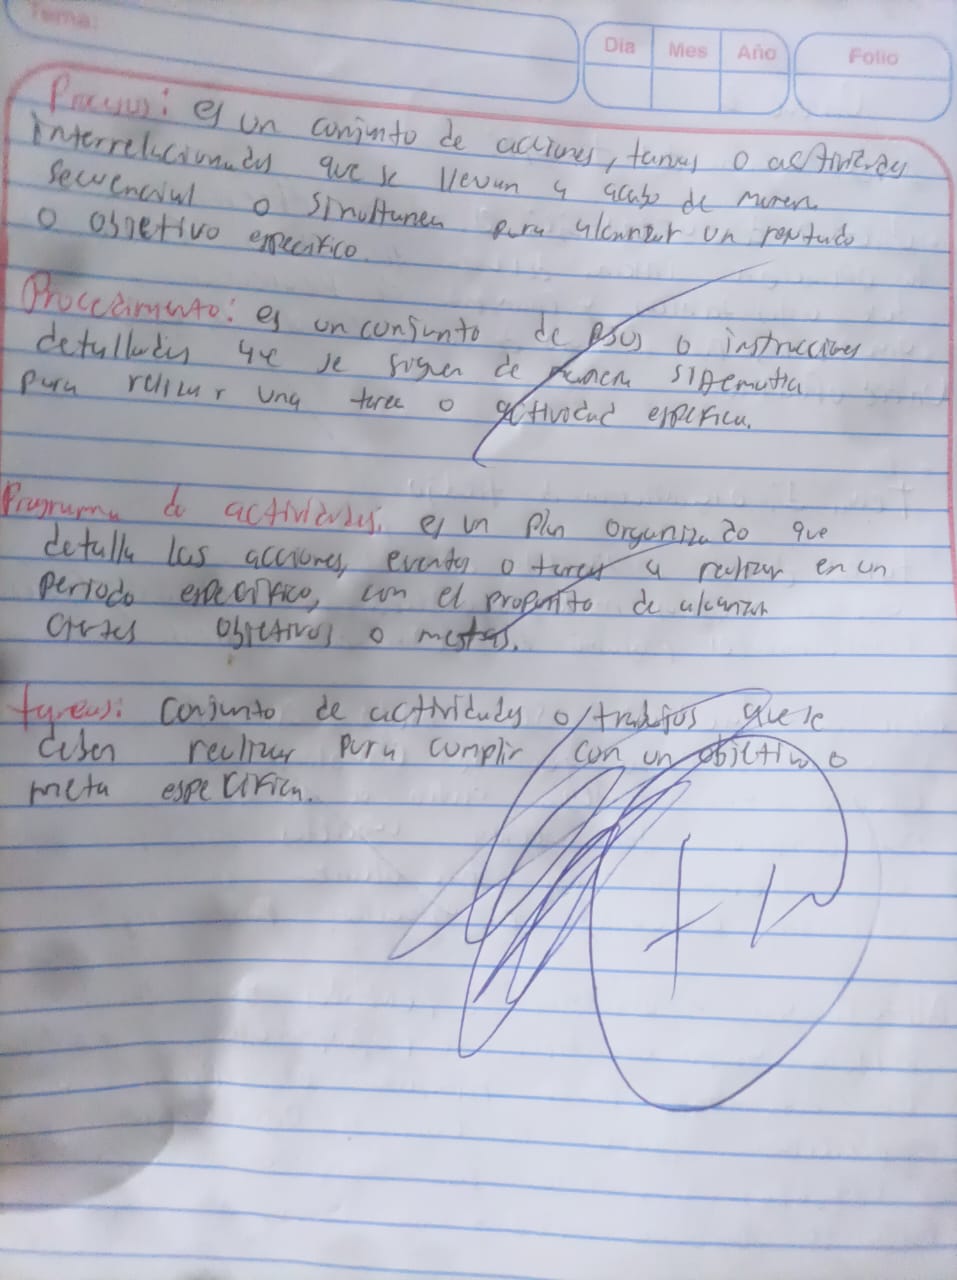 Tema:
Dia Mes Año Folio
Procesos: es un conjunto de acciones, tareas o actividades
interrelacionadas que se llevan a acabo de manera
secuencial o simultanea para alcanzar un resultado
o objetivo especifico.
Procedimiento: es un conjunto de pasos o instrucciones
detalladas que se siguen de manera sistematica
para relizar una tarea o actividad especifica.
Programa de actividades: es un plan organizado que
detalla las acciones, eventos o tareas a realizar en un
periodo especifico, con el proposito de alcanzar
ciertos objetivos o mestas.
tareas: conjunto de actividades o trabajos que se
deben realizar para cumplir con un objetivo o
meta especifica.
+1